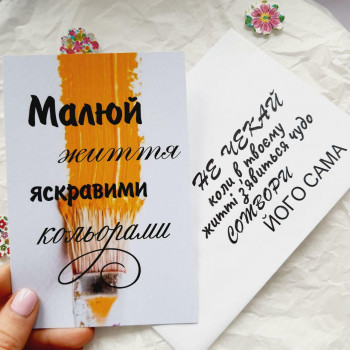 Малюй
життя
яскравими
кольорами
НЕ ЧЕКАЙ
коли, в твоєму
житті з'явиться чудо
СОТВОРИ
ЙОГО САМА